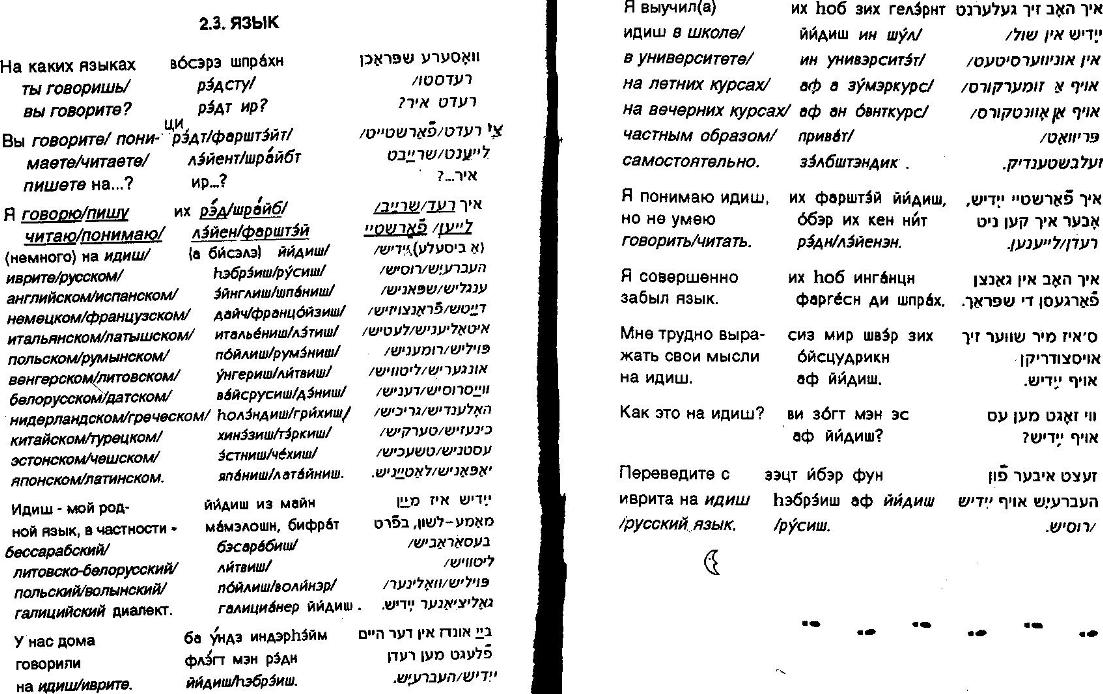 2.3. ЯЗЫК
На каких языках вóсэрэ шпрáхн וואָסערע שפּראַכן
ты говоришь/ рэ́дсту/ רעדסטו/
вы говорите? рэ́дт ир? רעדט איר?
ци
Вы говорите/ пони- рэ́дт/фарштэ́йт/ צי רעדט/פֿאַרשטייט/
маете/читаете/ лэ́йент/шрáйбт לייענט/שרײַבט
пишете на...? ир...? איר...?
Я говорю/пишу их рэ́д/шрáйб/ איך רעד/שרײַב/
читаю/понимаю/ лэ́йен/фарштэ́й לייען/ פֿאַרשטיי
(немного) на идиш/ (а би́сэлэ) йи́диш/ (אַ ביסעלע) ייִדיש/
иврите/русском/ hэбрэ́иш/ру́сиш/ העברעיִש/רוסיש/
английском/испанском/ э́йнглиш/шпáниш/ ענגליש/שפּאַניש/
немецком/французском/ дайч/францóйзиш/ דײַטש/פֿראַנצויזיש/
итальянском/латышском/ италье́ниш/лэ́тиш/ איטאַליעניש/לעטיש/
польском/румынском/ пóйлиш/румэ́ниш/ פּויליש/רומעניש/
венгерском/литовском/ у́нгериш/ли́твиш/ אונגעריש/ליטוויש/
белорусском/датском/ вáйсрусиш/дэ́ниш/ ווײַסרוסיש/דעניש/
нидерландском/греческом/ hолэ́ндиш/гри́хиш/ האָלענדיש/גריכיש/
китайском/турецком/ хинэ́зиш/тэ́ркиш/ כינעזיש/טערקיש/
эстонском/чешском/ э́стниш/че́хиш/ עסטניש/טשעכיש/
японском/латинском. япáниш/латáйниш. יאַפּאַניש/לאַטײַניש.
Идиш - мой род- йи́диш из майн ייִדיש איז מײַן
ной язык, в частности - мáмэлошн, бифрáт מאַמע-לשון, בפֿרט
бессарабский/ бэсарáбиш/ בעסאַראַביש/
литовско-белорусский/ ли́твиш/ ליטוויש/
польский/волынский/ пóйлиш/воли́нэр/ פּויליש/וואָלינער/
галицийский диалект. галициáнер йи́диш. גאַליציאַנער ייִדיש.
У нас дома ба у́ндз индэрhэ́йм בײַ אונדז אין דער היים
говорили флэ́гт мэн рэ́дн פֿלעגט מען רעדן
на идиш/иврите. йи́диш/hэбрэ́иш. ייִדיש/העברעיִש.
Я выучил(а) их hоб зих гелэ́рнт איך האָב זיך געלערנט
идиш в школе/ йи́диш ин шу́л/ ייִדיש אין שול/
в университете/ ин университэ́т/ אין אוניווערסיטעט/
на летних курсах/ аф а зу́мэркурс/ אויף אַ זומערקורס/
на вечерних курсах/ аф ан óвнткурс/ אויף אַן אָוונטקורס/
частным образом/ привáт/ פּריוואַט/
самостоятельно. зэ́лбштэндик. זעלבשטענדיק.
Я понимаю идиш, их фарштэ́й йи́диш, איך פֿאַרשטיי ייִדיש,
но не умею óбэр их кен ни́т אָבער איך קען ניט
говорить/читать. рэ́дн/лэ́йенэн. רעדן/לייענען.
Я совершенно их hоб ингáнцн איך האָב אין גאַנצן
забыл язык. фаргéсн ди шпрáх. פֿאַרגעסן די שפּראַך.
Мне трудно выра- сиз мир швэ́р зих ס'איז מיר שווער זיך
жать свои мысли óйсцудрикн אויסצודריקן
на идиш. аф йи́диш. אויף ייִדיש.
Как это на идиш? ви зóгт мэн эс ווי זאָגט מען עס
аф йи́диш? אויף ייִדיש?
Переведите с зэцт и́бэр фун זעצט איבער פֿון
иврита на идиш hэбрэ́иш аф йи́диш העברעיִש אויף ייִדיש
/русский язык. /ру́сиш. /רוסיש.